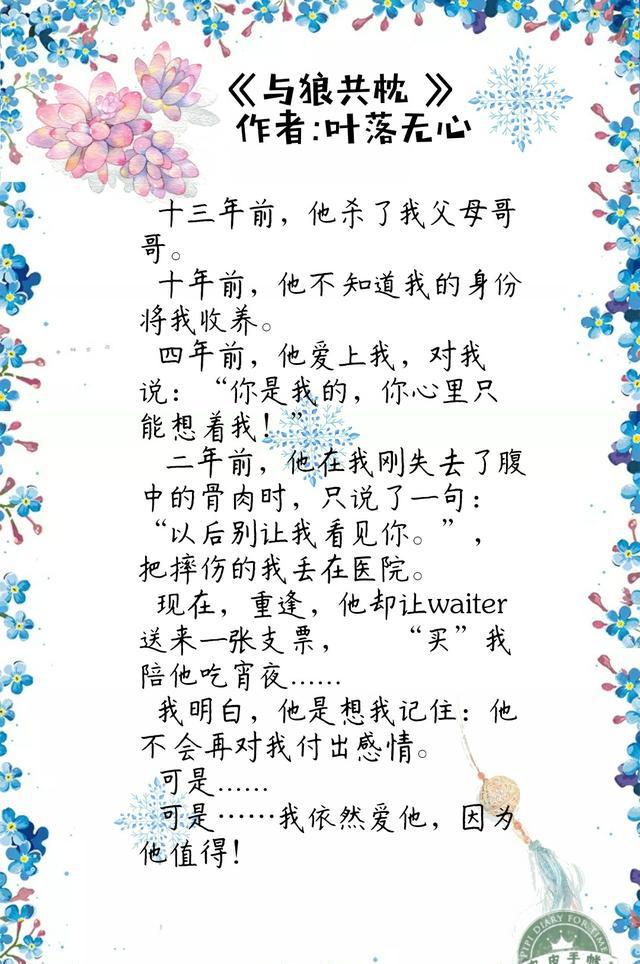 《与狼共枕 》
作者:叶落无心
十三年前，他杀了我父母哥
哥。
十年前，他不知道我的身份
将我收养。
四年前，他爱上我，对我
说：“你是我的，你心里只
能想着我！”
二年前，他在我刚失去了腹
中的骨肉时，只说了一句：
“以后别让我看见你。”，
把摔伤的我丢在医院。
现在，重逢，他却让waiter
送来一张支票， “买”我
陪他吃宵夜……
我明白，他是想我记住：他
不会再对我付出感情。
可是……
可是……我依然爱他，因为
他值得！
PIPI DIARY FOR TIME
皮皮手帐